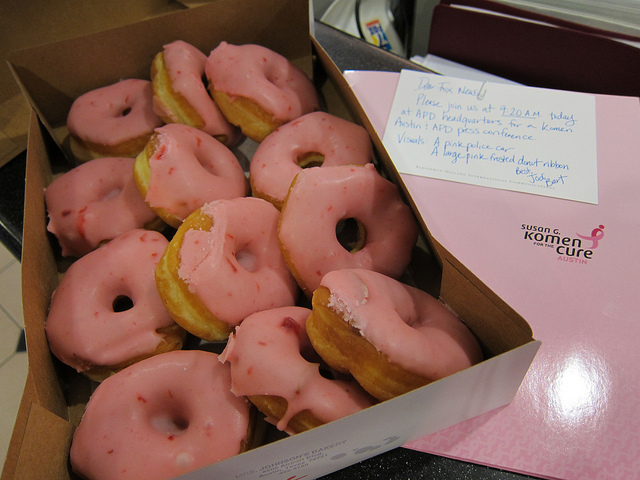 Dear Fox News,
Please join us at 9:20 A.M. today
at APD headquarters for a Komen
Austin & APD press conference
Visuals: A pink police car
A large pink-frosted donut ribbon
Best,
susan G.
Komen
FOR THE
cure
AUSTIN
JOHNSON'S BAKERY